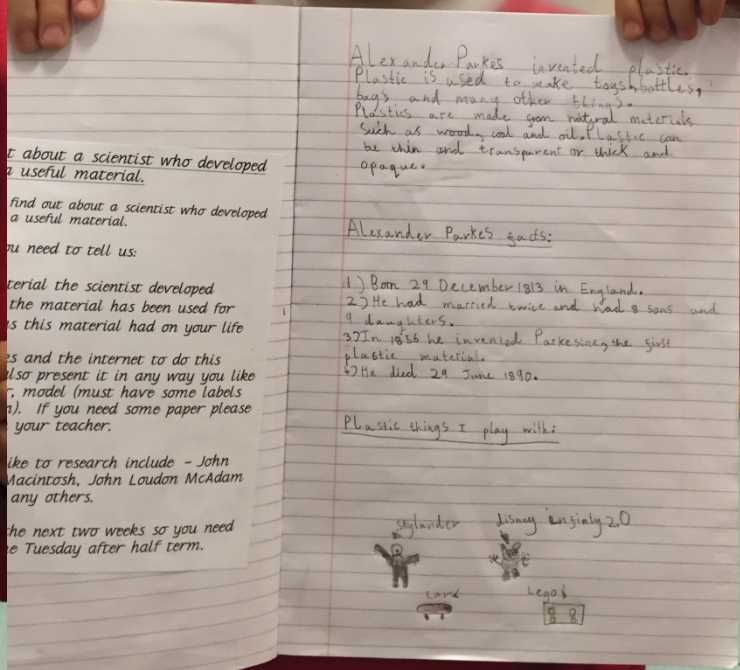 t about a scientist who developed
a useful material.
find out about a scientist who developed
a useful material.
ou need to tell us:
terial the scientist developed
the material has been used for
s this material had on your life
s and the internet to do this
lso present it in any way you like
r, model (must have some labels
n). If you need some paper please
your teacher.
ike to research include - John
Macintosh, John Loudon McAdam
any others.
he next two weeks so you need
e Tuesday after half term.
Alexander Parkes invented plastic.
Plastic is used to make toys, bottles,
bags and many other things.
Plastics are made from natural materials
such as wood, coal and oil. Plastic can
be thin and transparent or thick and
opaque.
Alexander Parkes facts:
1) Born 29 December 1813 in England.
2) He had married twice and had 8 sons and
9 daughters.
3) In 1856 he invented Parkesine, the first
plastic material.
4) He died 29 June 1890.
Plastic things I play with:
skylander disney infinty 2.0
cars Legos